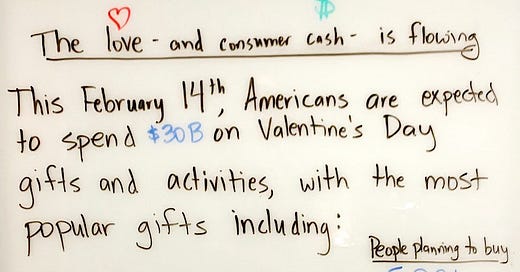 The love - and consumer cash - is flowing
This February 14th, Americans are expected
to spend $30B on Valentine's Day
gifts and activities, with the most
popular gifts including:
People planning to buy